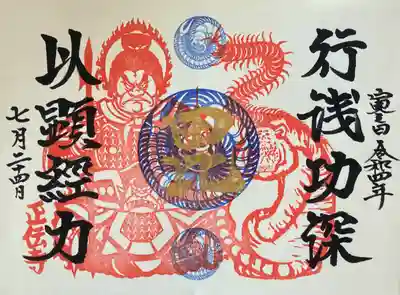 行浅功深
令和四年
以顕經力
七月二四日
正伝寺